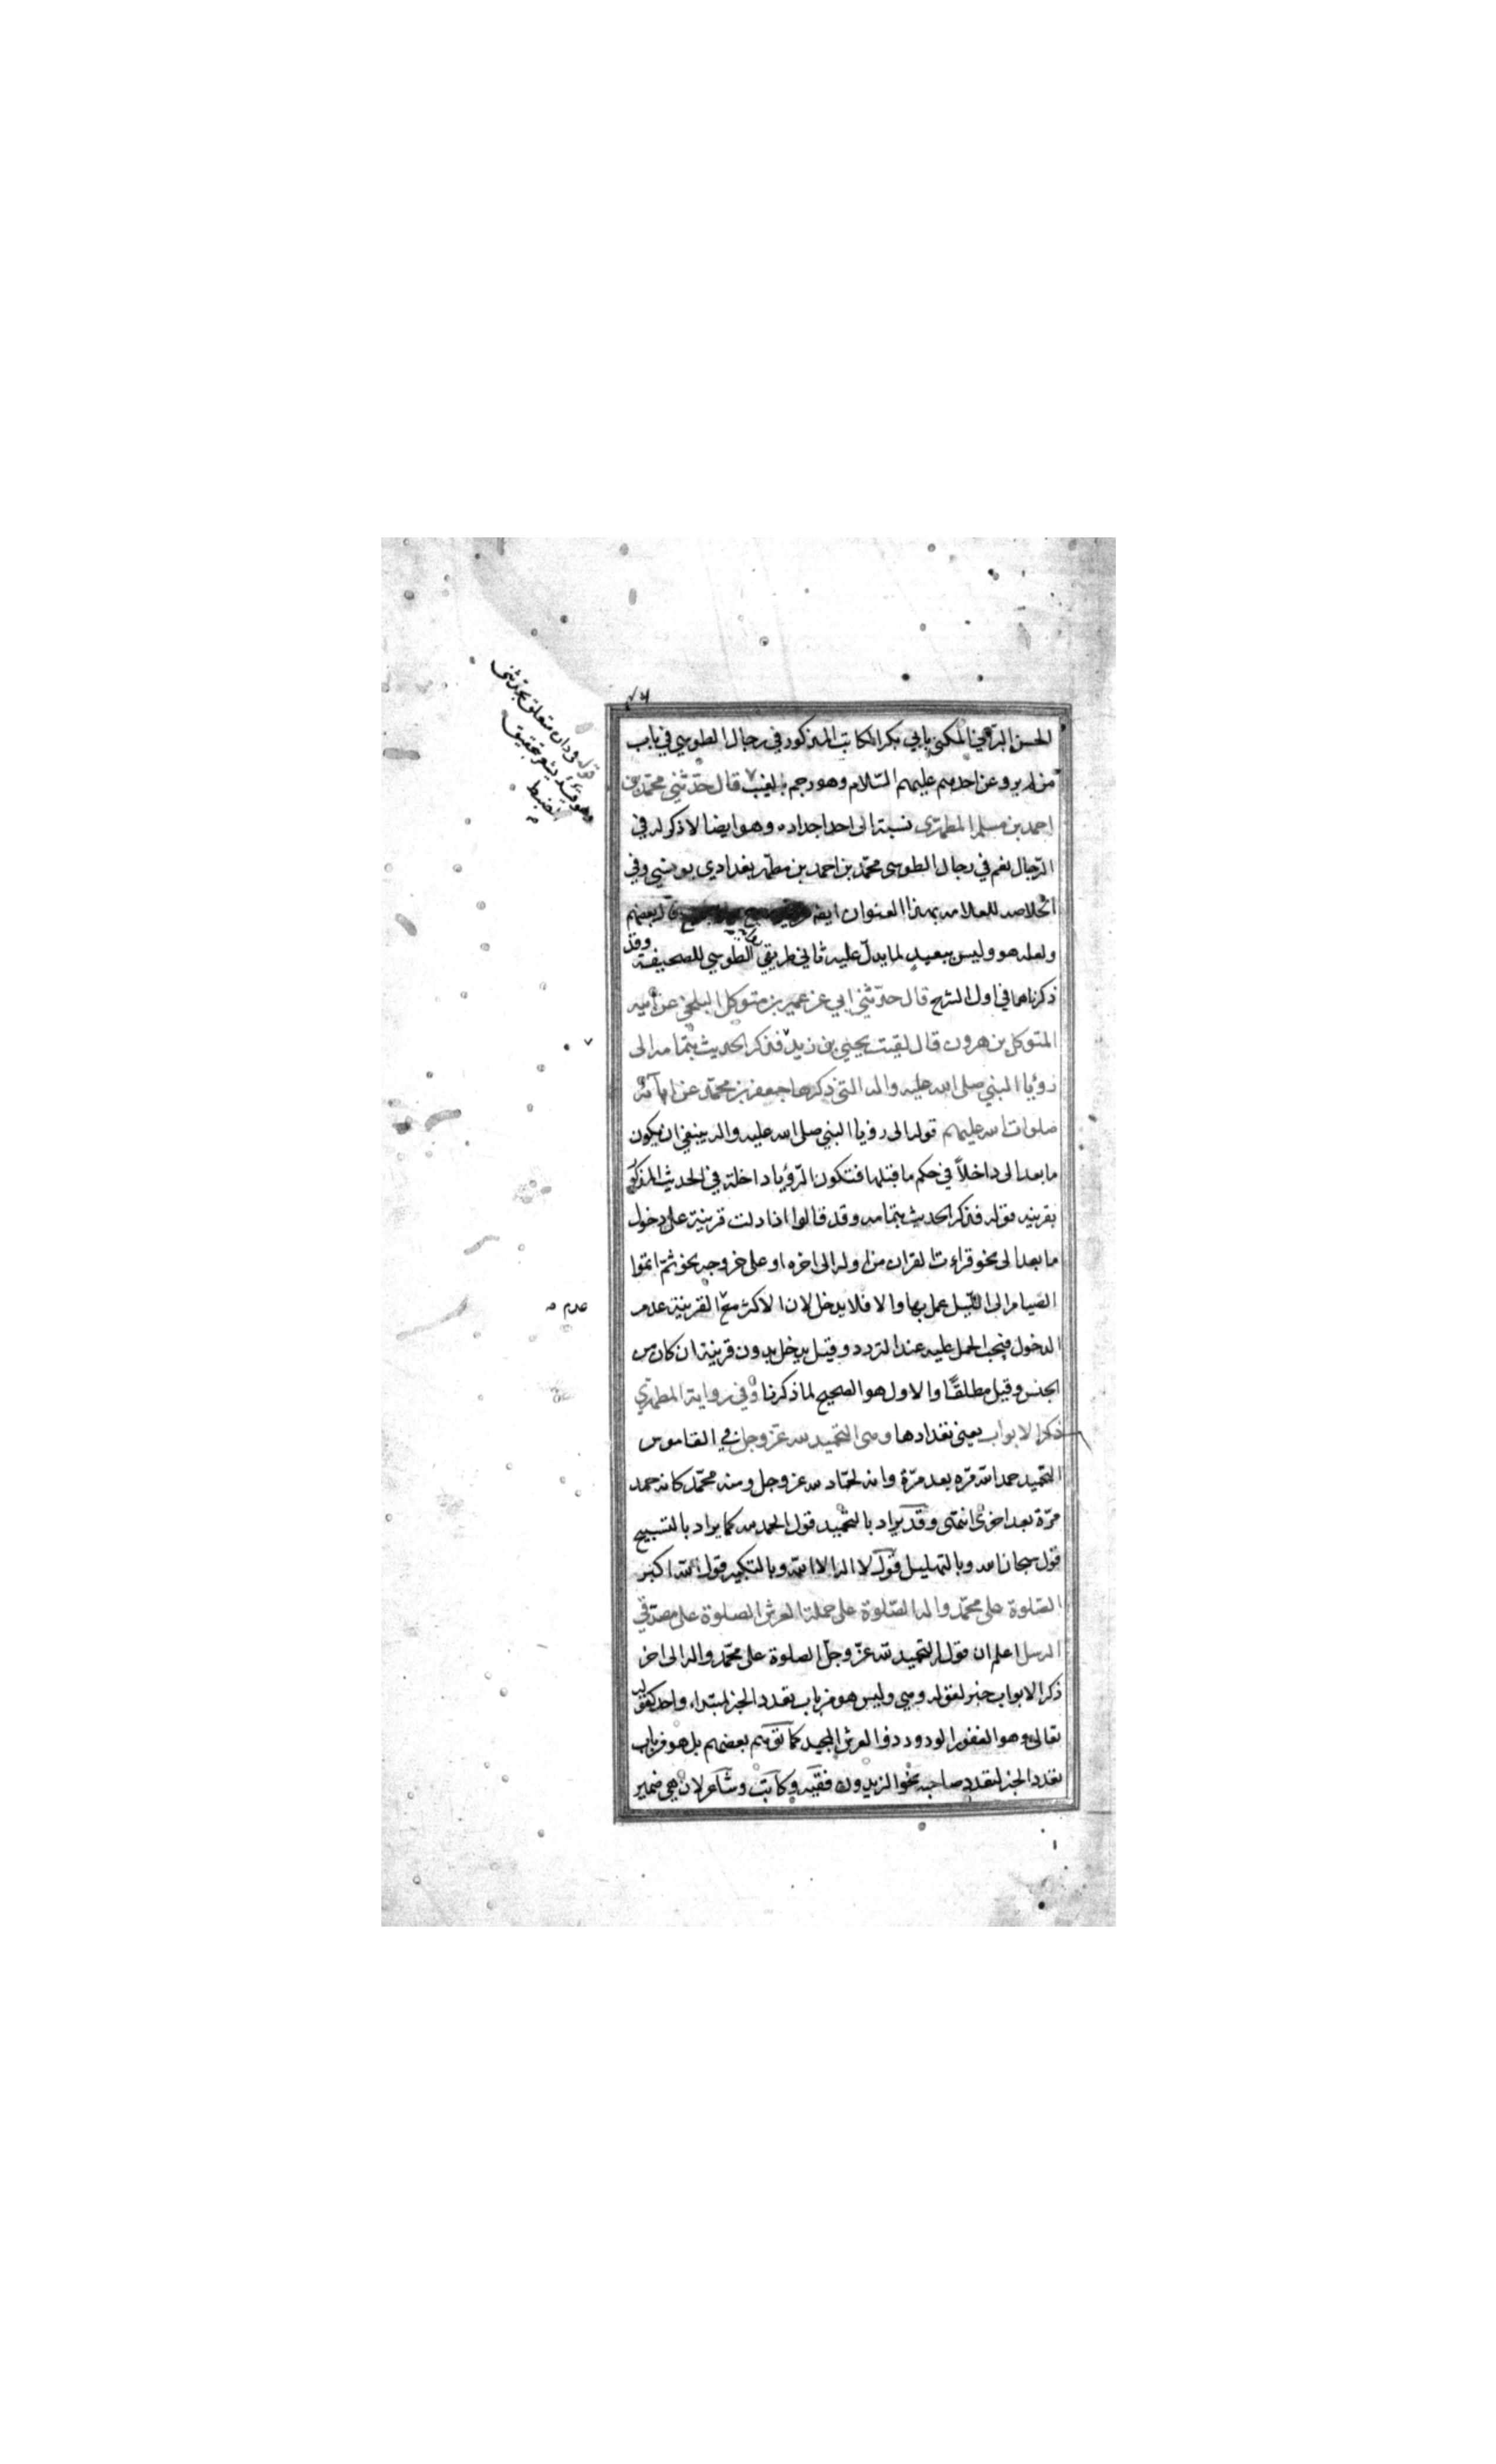 الحسن البرقي المكنى بابي بكر الكاتب المذكور في رجال الطوسي في باب
من لم يرو عن احدهم عليهم السّلام وهو رجم بالغيب قال حدّثني محمّد بن
احمد بن مسلم المطهّري نسبة الى احد اجداده وهو ايضا لا ذكر له في
الرّجال نعم في رجال الطوسى محمّد بن احمد بن مطهّر بغدادي يونسي وفي
الخلاصه للعلامه بهذا العنوان ايضا قال بعضهم
ولعله هو وليس ببعيد لما يدلّ عليه ثاني طريقي الطوسي للصحيفة وقد
ذكرناهما في اول الشرح قال حدّثني ابي عن عمير بن متوكل البلخي عن ابيه
المتوكل بن هرون قال لقيت يحيى بن زيد فذكر الحديث بتمامه الى
رؤيا النبي صلى الله عليه واله التي ذكرها جعفر بن محمّد عن ابآئه
صلوات الله عليهم قوله الى رؤيا النبي صلى الله عليه واله ينبغي ان يكون
ما بعد الى داخلاً في حكم ما قبلها فتكون الرّؤيا داخلة في الحديث المذكور
بقرينه قوله فذكر الحديث بتمامه وقد قالوا اذا دلت قرينة على دخول
ما بعد الى نحو قراءت القران من اوله الى اخره او على خروجه نحو ثم اتموا
الصيام الى الليل عمل بها والا فلا يدخل لان الاكثر مع القرينة عدم
الدخول فيجب الحمل عليه عند التردد وقيل يدخل بدون قرينة ان كان من
الجنس وقيل مطلقًا والاول هو الصحيح لما ذكرنا وفي رواية المطهري
ذكر الابواب يعني تعدادها وهي التحميد لله عزّ وجل في القاموس
التحميد حمد الله مرّه بعد مرّة وانه لحمّاد لله عز وجل ومنه محمّد كانه حمد
مرّة بعد اخرى انتهى وقد يراد بالتحميد قول الحمد لله كما يراد بالتسبيح
قول سبحان الله وبالتهليل قول لا اله الا الله وبالتكبير قول الله اكبر
الصّلوة على محمّد واله الصّلوة على حملة العرش الصلوة على مصدّقي
الرسل اعلم ان قوله التحميد لله عزّ وجلّ الصلوة على محمّد واله الى اخر
ذكر الابواب خبر لقوله وهي وليس هو من باب تعدد الخبر لمبتداء واحد كقوله
تعالى وهو الغفور الودود ذو العرش المجيد كما توهم بعضهم بل هو من باب
تعدد الخبر لتعدد صاحبه نحو الزيدون فقيه وكاتب وشاعر لان هي ضمير
قوله وان متعلق بحدّثني
وهو
الضبط
عدم